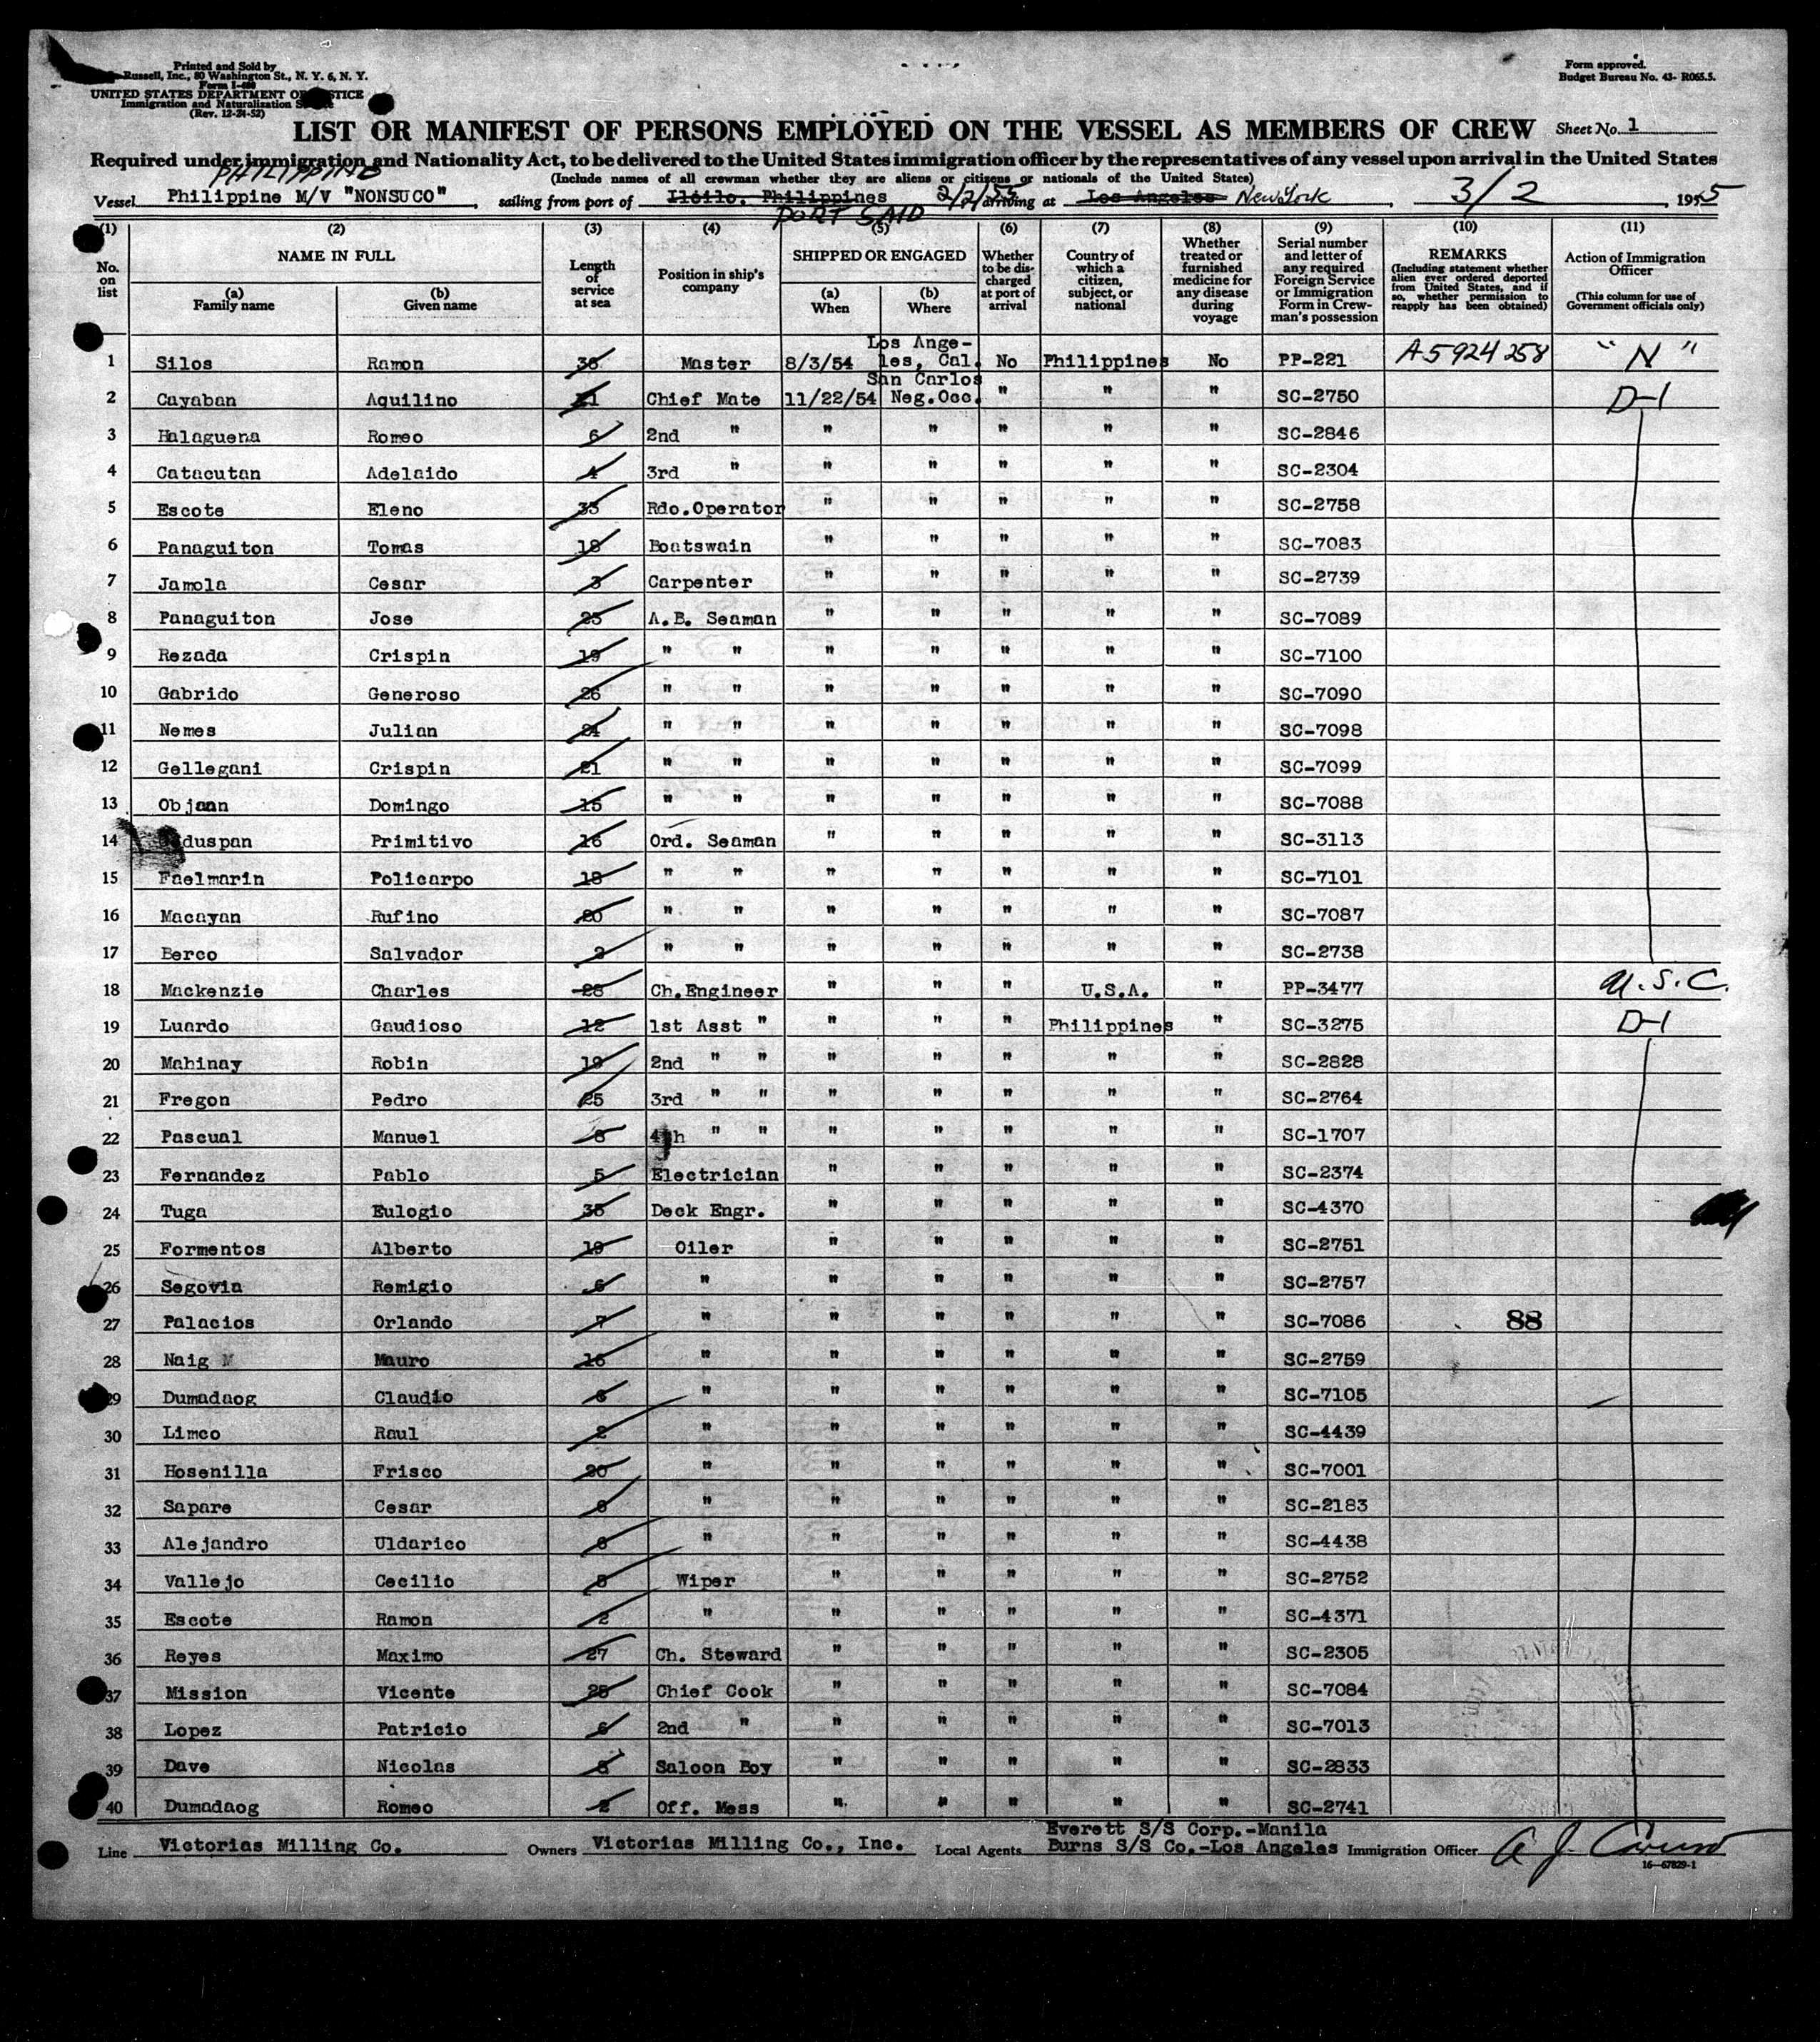 Printed and Sold by
Russell, Inc., 80 Washington St., N. Y. 6, N. Y.
Form I-480
UNITED STATES DEPARTMENT OF JUSTICE
Immigration and Naturalization
(Rev. 12-24-52)
Form approved.
Budget Bureau No. 43-R065.5.
LIST OR MANIFEST OF PERSONS EMPLOYED ON THE VESSEL AS MEMBERS OF CREW Sheet No. 1
Required under immigration and Nationality Act, to be delivered to the United States immigration officer by the representatives of any vessel upon arrival in the United States
(Include names of all crewman whether they are aliens or citizens or nationals of the United States)
PHILIPPINE
Vessel Philippine M/V "NONSUCO" sailing from port of Iloilo, Philippines 2/2/55 arriving at Los Angeles New York, 3/2, 1955
PORT SAID
(1) No. on list
(2) NAME IN FULL (a) Family name (b) Given name
(3) Length of service at sea
(4) Position in ship's company
(5) SHIPPED OR ENGAGED (a) When (b) Where
(6) Whether to be discharged at port of arrival
(7) Country of which a citizen, subject, or national
(8) Whether treated or furnished medicine for any disease during voyage
(9) Serial number and letter of any required Foreign Service or Immigration Form in Crewman's possession
(10) REMARKS (Including statement whether alien ever ordered deported from United States, and if so, whether permission to reapply has been obtained)
(11) Action of Immigration Officer (This column for use of Government officials only)
1 Silos Ramon 36 Master 8/3/54 Los Angeles, Cal. No Philippines No PP-221 A5924258 "N"
2 Cayaban Aquilino 21 Chief Mate 11/22/54 San Carlos Neg.Occ. " " " SC-2750 D-1
3 Halaguena Romeo 6 2nd " " " " " " SC-2846
4 Catacutan Adelaido 4 3rd " " " " " " SC-2304
5 Escote Eleno 33 Rdo.Operator " " " " " SC-2758
6 Panaguiton Tomas 18 Boatswain " " " " " SC-7083
7 Jamola Cesar 3 Carpenter " " " " " SC-2739
8 Panaguiton Jose 25 A.B. Seaman " " " " " SC-7089
9 Rezada Crispin 19 " " " " " " " SC-7100
10 Gabrido Generoso 26 " " " " " " " SC-7090
11 Nemes Julian 24 " " " " " " " SC-7098
12 Gellegani Crispin 21 " " " " " " " SC-7099
13 Objaan Domingo 15 " " " " " " " SC-7088
14 duspan Primitivo 16 Ord. Seaman " " " " " SC-3113
15 Faelmarin Policarpo 18 " " " " " " " SC-7101
16 Macayan Rufino 20 " " " " " " " SC-7087
17 Berco Salvador 2 " " " " " " " SC-2738
18 Mackenzie Charles 28 Ch.Engineer " " " U.S.A. " PP-3477 U.S.C.
19 Luardo Gaudioso 12 1st Asst " " " " Philippines " SC-3275 D-1
20 Mahinay Robin 19 2nd " " " " " " " SC-2828
21 Fregon Pedro 25 3rd " " " " " " " SC-2764
22 Pascual Manuel 8 4th " " " " " " " SC-1707
23 Fernandez Pablo 5 Electrician " " " " " SC-2374
24 Tuga Eulogio 35 Deck Engr. " " " " " SC-4370
25 Formentos Alberto 19 Oiler " " " " " SC-2751
26 Segovia Remigio 6 " " " " " " SC-2757
27 Palacios Orlando 7 " " " " " " SC-7086 88
28 Naig Mauro 16 " " " " " " SC-2759
29 Dumadaog Claudio 6 " " " " " " SC-7105
30 Limco Raul 2 " " " " " " SC-4439
31 Hosenilla Frisco 20 " " " " " " SC-7001
32 Sapare Cesar 8 " " " " " " SC-2183
33 Alejandro Uldarico 6 " " " " " " SC-4438
34 Vallejo Cecilio 8 Wiper " " " " " SC-2752
35 Escote Ramon 2 " " " " " " SC-4371
36 Reyes Maximo 27 Ch. Steward " " " " " SC-2305
37 Mission Vicente 25 Chief Cook " " " " " SC-7084
38 Lopez Patricio 6 2nd " " " " " " SC-7013
39 Dave Nicolas 8 Saloon Boy " " " " " SC-2833
40 Dumadaog Romeo 2 Off. Mess " " " " " SC-2741
Line Victorias Milling Co. Owners Victorias Milling Co., Inc. Local Agents Everett S/S Corp.-Manila Burns S/S Co.-Los Angeles Immigration Officer A J. Caruso
16-67829-1